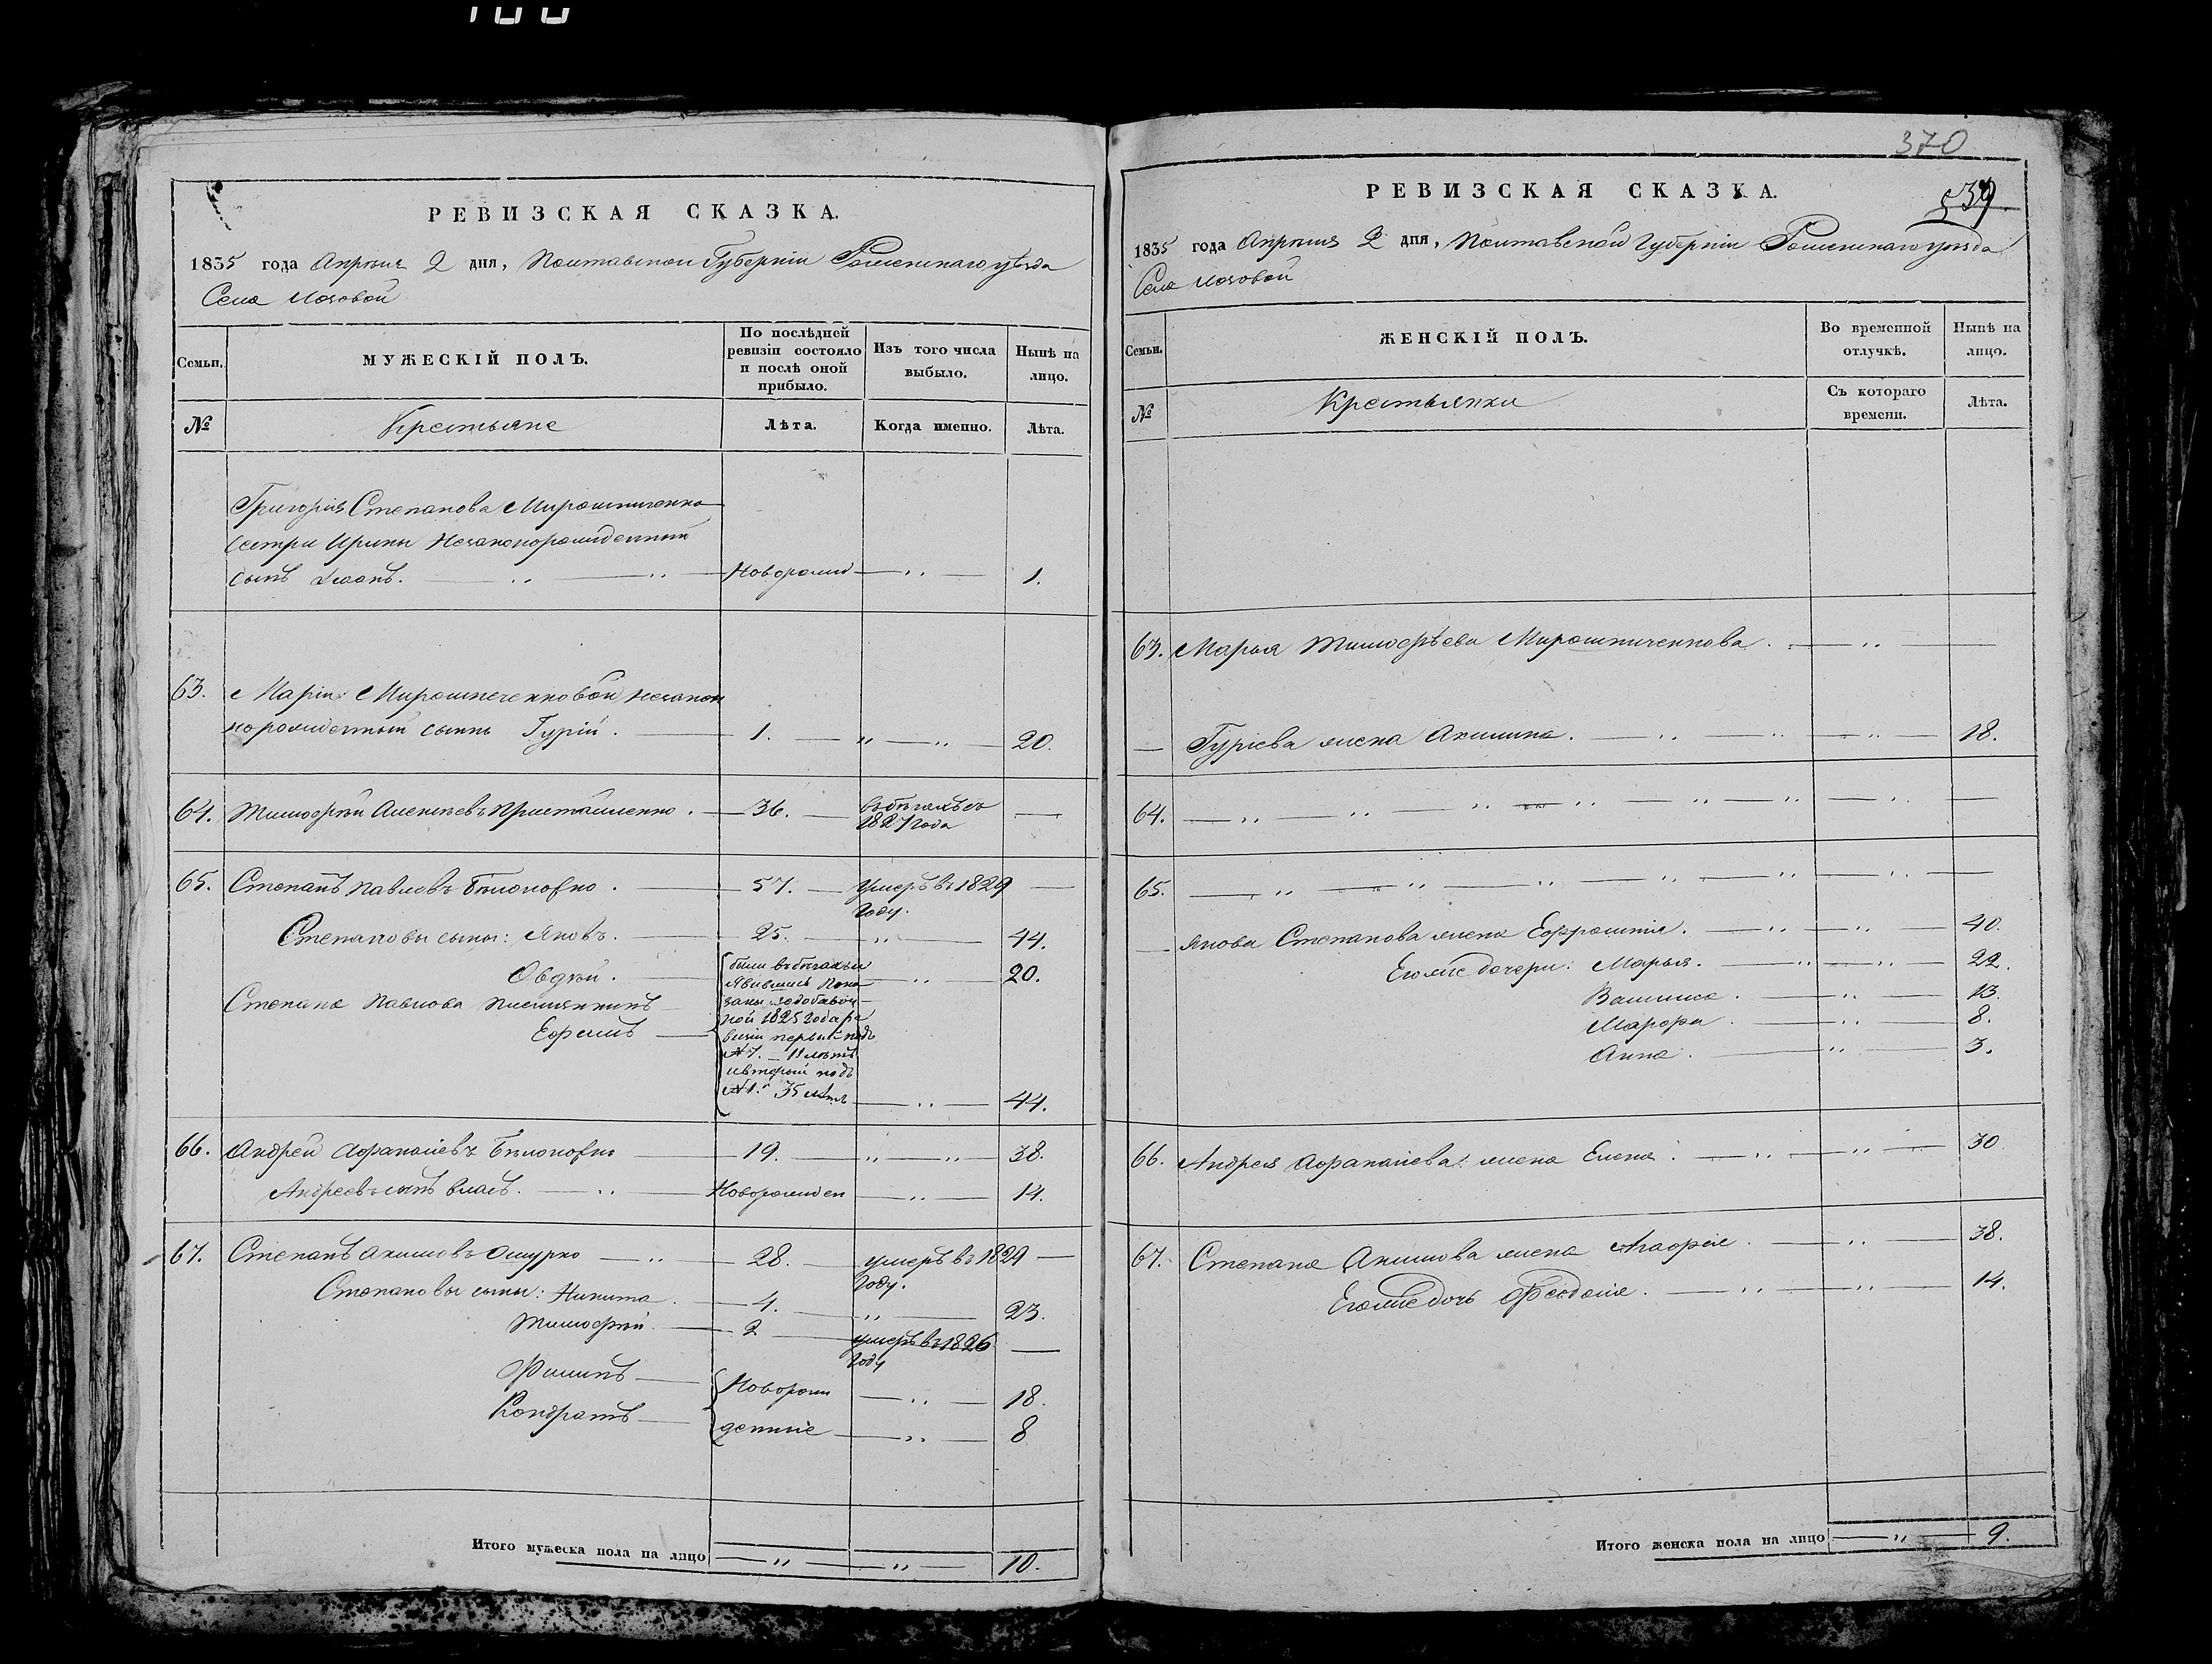 370
РЕВИЗСКАЯ СКАЗКА.
1835 года Апрѣля 2 дня, Полтавской Губерніи Роменскаго уѣзда
Села Лозовой
Семьи.
МУЖЕСКІЙ ПОЛЪ.
По послѣдней ревизіи состояло и послѣ оной прибыло.
Изъ того числа выбыло.
Нынѣ на лицо.
№
Крестьяне
Лѣта.
Когда именно.
Лѣта.
Григорія Степанова Мирошниченка
сестри Ирины Незаконорожденный
сынъ Іванъ. Новорожд 1.
63. Маріи Мирошниченковой незакон
норожденный сынъ Гурій. 1. 20.
64. Тимофѣй Алексѣевъ 36. въ бѣгахъ съ
1827 года
65. Степанъ Павловъ Бѣлоногко. 57. Умеръ въ 1829
году.
Степановы сыны: Яковъ. 25. 44.
Овдѣй. 20.
Степана Павлова Племянникъ
Ефимъ 44.
были въ бѣгахъ и
явившись пока
заны
ной 1825 года ре
визіи первый подъ
№ 7. 11 лѣтъ
и вторый подъ
№ 1. 35 лѣтъ
66. Андрей Афанасіевъ Бѣлоногко 19. 38.
Андреевъ сынъ Власъ. Новорожден 14.
67. Степанъ Акимовъ Ошурко 28. умеръ въ 1829
году.
Степановы сыны: Никита. 4. 23.
Тимофѣй. 2 умеръ въ 1826
году
Филипъ Новорож 18.
Кондратъ денніе 8
Итого мужеска пола на лицо 10.
РЕВИЗСКАЯ СКАЗКА.
1835 года Апрѣля 2 дня, Полтавской Губерніи Роменскаго уѣзда
Села Лозовой
Семьи.
ЖЕНСКІЙ ПОЛЪ.
Во временной отлучкѣ.
Нынѣ на лицо.
№
Крестьянки
Съ котораго времени.
Лѣта.
63. Марья Тимофѣева Мирошниченкова.
Гуріева жена Акилина. 18.
64.
65.
Якова Степанова жена Ефросинія. 40.
Его же дочери: Марья. 22.
Василиса. 13.
Марфа. 8.
Анна. 3.
66. Андрея Афанасіева жена Елена. 30
67. Степана Акимова жена Агафія. 38.
Его же дочь Феодосія. 14.
Итого женска пола на лицо 9.